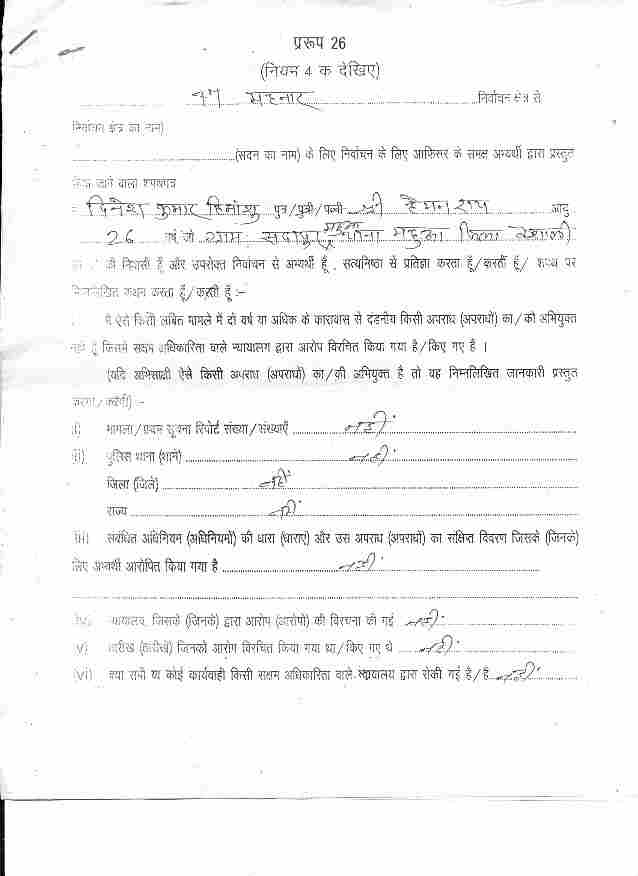 प्ररूप 26
(नियम 4 क देखिए)
महनार निर्वाचन क्षेत्र से
निर्वाचन क्षेत्र का नाम)
(सदन का नाम) के लिए निर्वाचन के लिए आफिसर के समक्ष अभ्यर्थी द्वारा प्रस्तुत
किया जाने वाला शपथपत्र
दिनेश कुमार हिमांशु पुत्र/पुत्री/पत्नी श्री आयु
26 वर्ष जो ग्राम थाना जिला वैशाली
का निवासी हूँ और उपरोक्त निर्वाचन से अभ्यर्थी हूँ, सत्यनिष्ठा से प्रतिज्ञा करता हूँ/करती हूँ/ शपथ पर
निम्नलिखित कथन करता हूँ/करती हूँ :-
मैं ऐसे किसी लंबित मामले में दो वर्ष या अधिक के कारावास से दंडनीय किसी अपराध (अपराधों) का/की अभियुक्त
नहीं हूँ जिसमें सक्षम अधिकारिता वाले न्यायालय द्वारा आरोप विरचित किया गया है/किए गए है ।
(यदि अभिसाक्षी ऐसे किसी अपराध (अपराधों) का/की अभियुक्त है तो वह निम्नलिखित जानकारी प्रस्तुत
करेगा/करेगी) :-
i) मामला/प्रथम सूचना रिपोर्ट संख्या/संख्याएँ नहीं
ii) पुलिस थाना (थाने) नहीं
जिला (जिले) नहीं
राज्य नहीं
iii) संबंधित अधिनियम (अधिनियमों) की धारा (धाराएं) और उस अपराध (अपराधों) का संक्षिप्त विवरण जिसके (जिनके)
लिए अभ्यर्थी आरोपित किया गया है नहीं
iv) न्यायालय, जिसके (जिनके) द्वारा आरोप (आरोपों) की विरचना की गई नहीं
v) तारीख (तारीखें) जिनको आरोप विरचित किया गया था/किए गए थे नहीं
vi) क्या सभी या कोई कार्यवाही किसी सक्षम अधिकारिता वाले न्यायालय द्वारा रोकी गई है/हैं नहीं